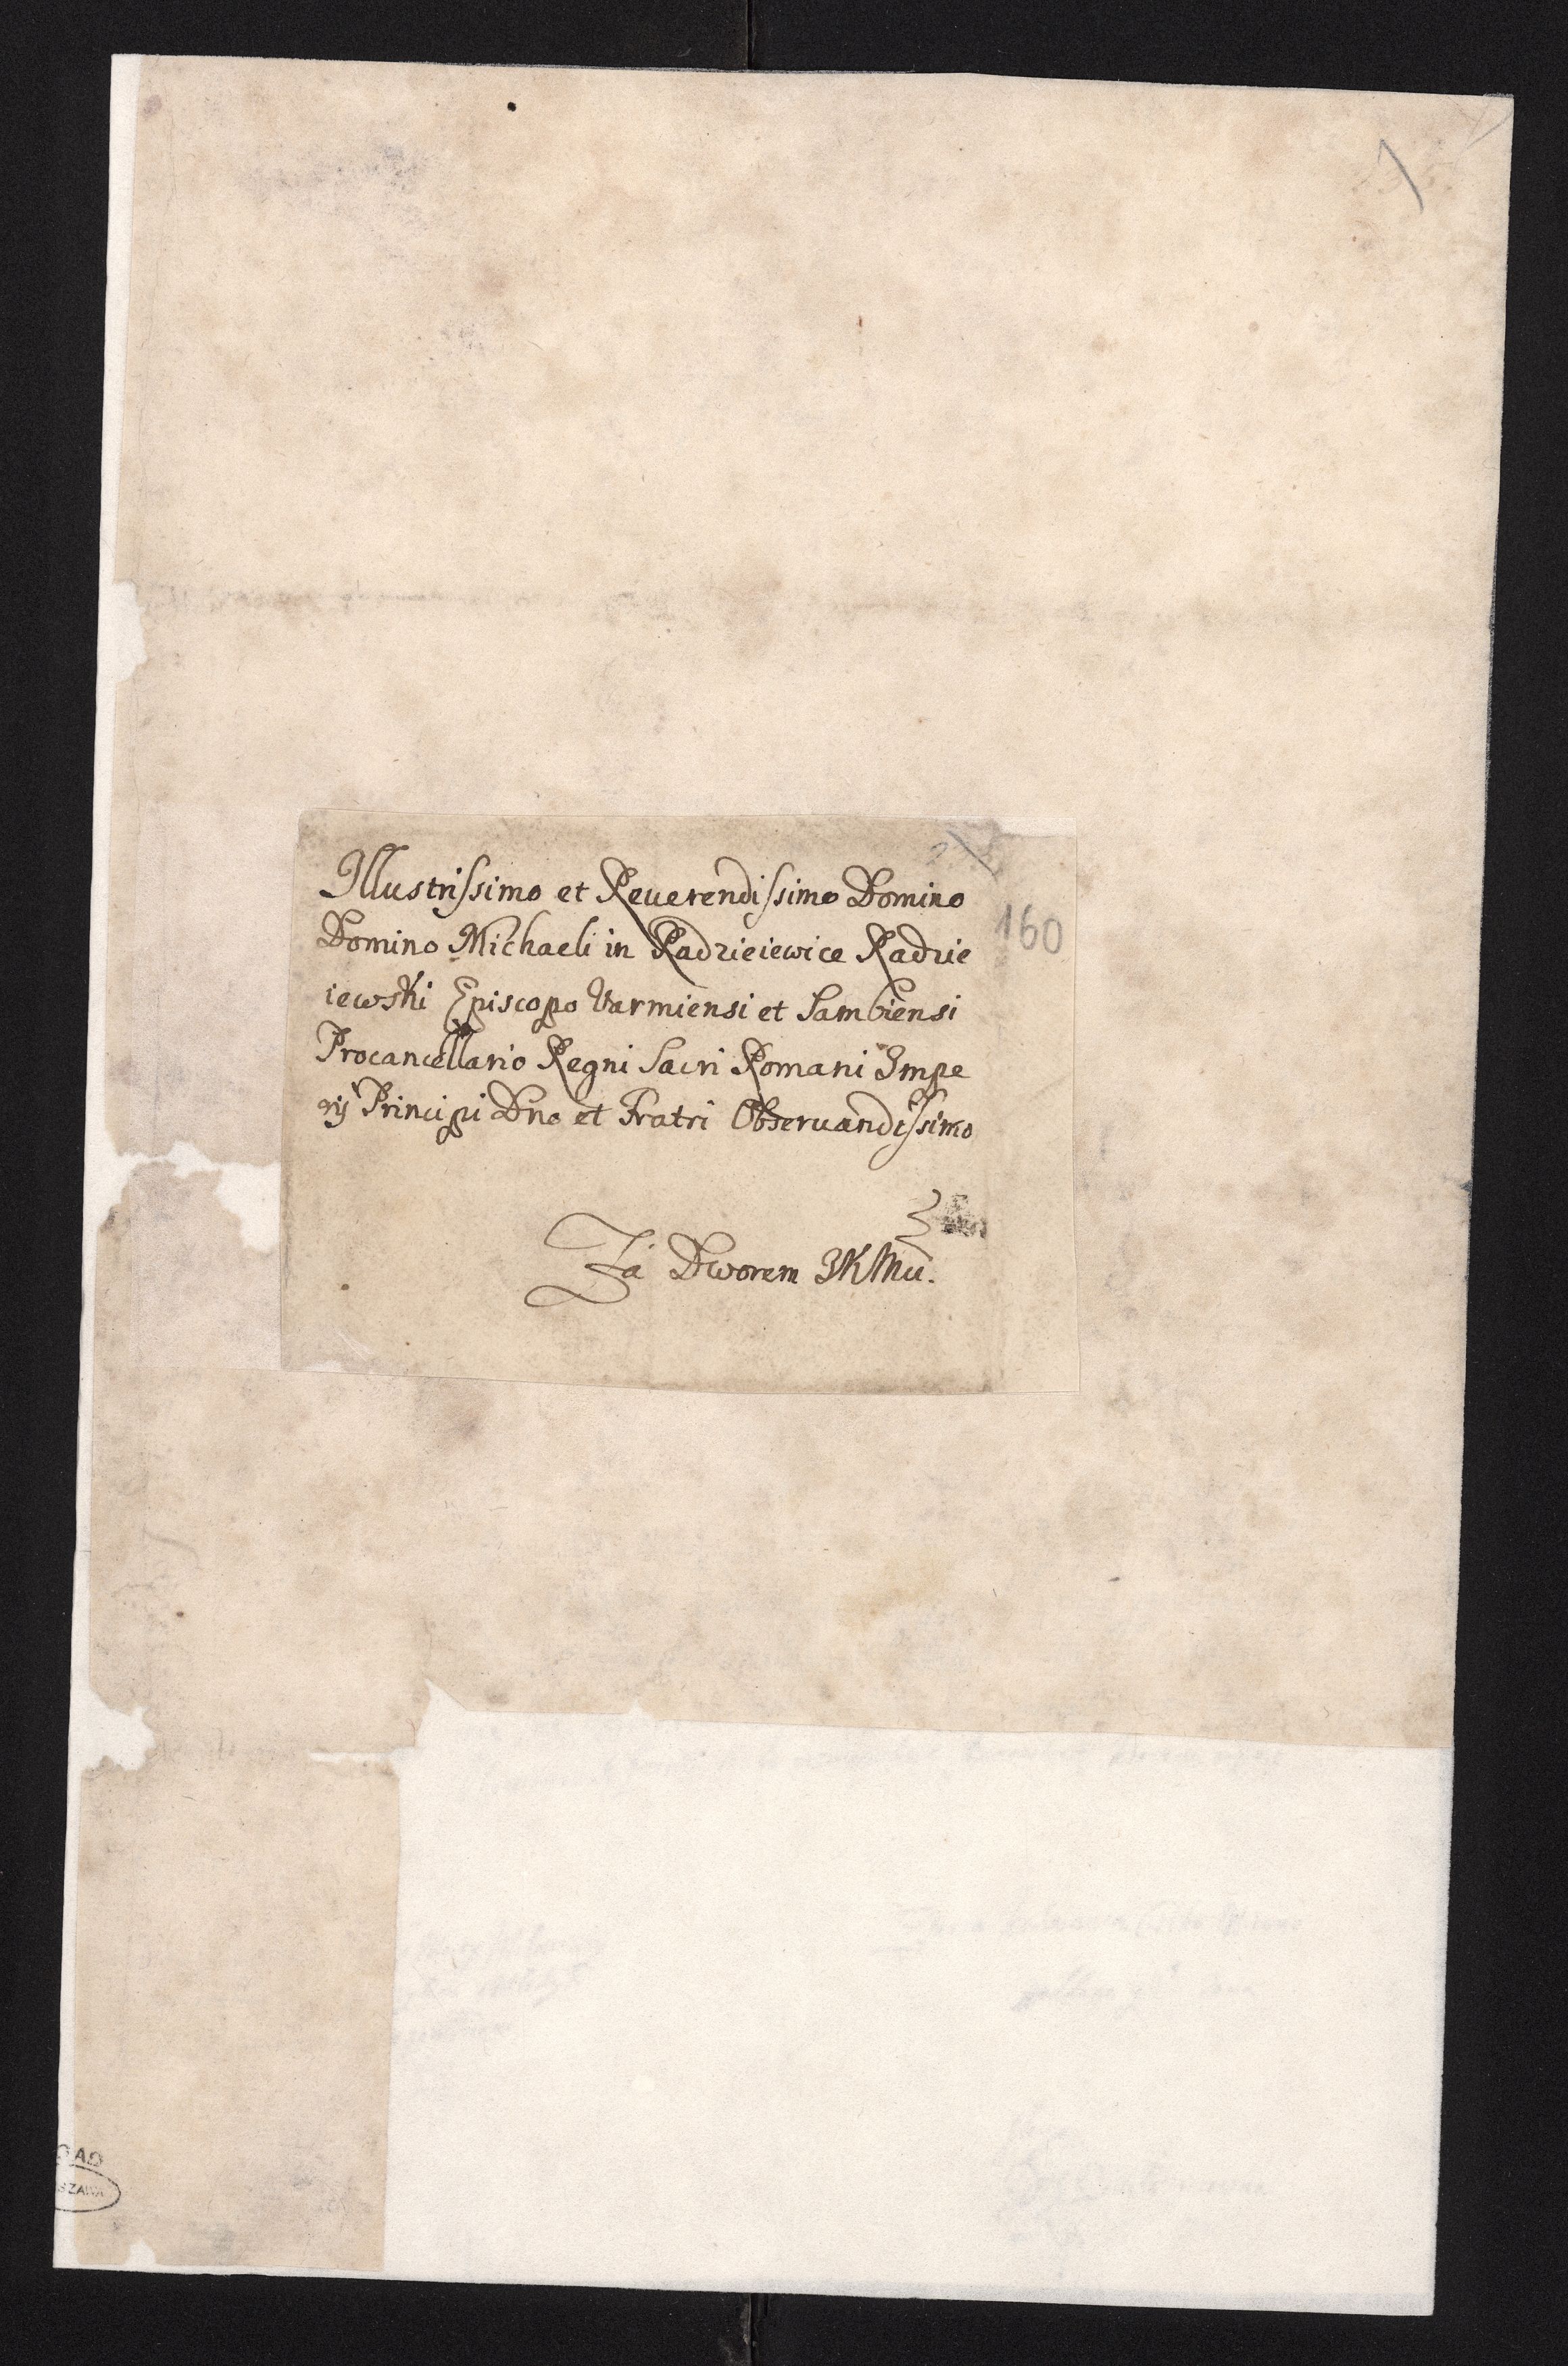 Illustrissimo et Reuerendissimo Domino
Domino Michaeli in Radzieiewice Radzie
iewski Episcopo Varmiensi et Sambiensi
Procancellario Regni Sacri Romani Impe
rij Principi Dno et Fratri Obseruandissimo
160
Za Dworem JKMci.
GAD
SZAWA